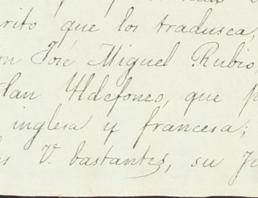 rito que los tradusca,
on José Miguel Rubio,
tlan Ildefonso, que p
inglesa y francesa;
V. bastantes, su